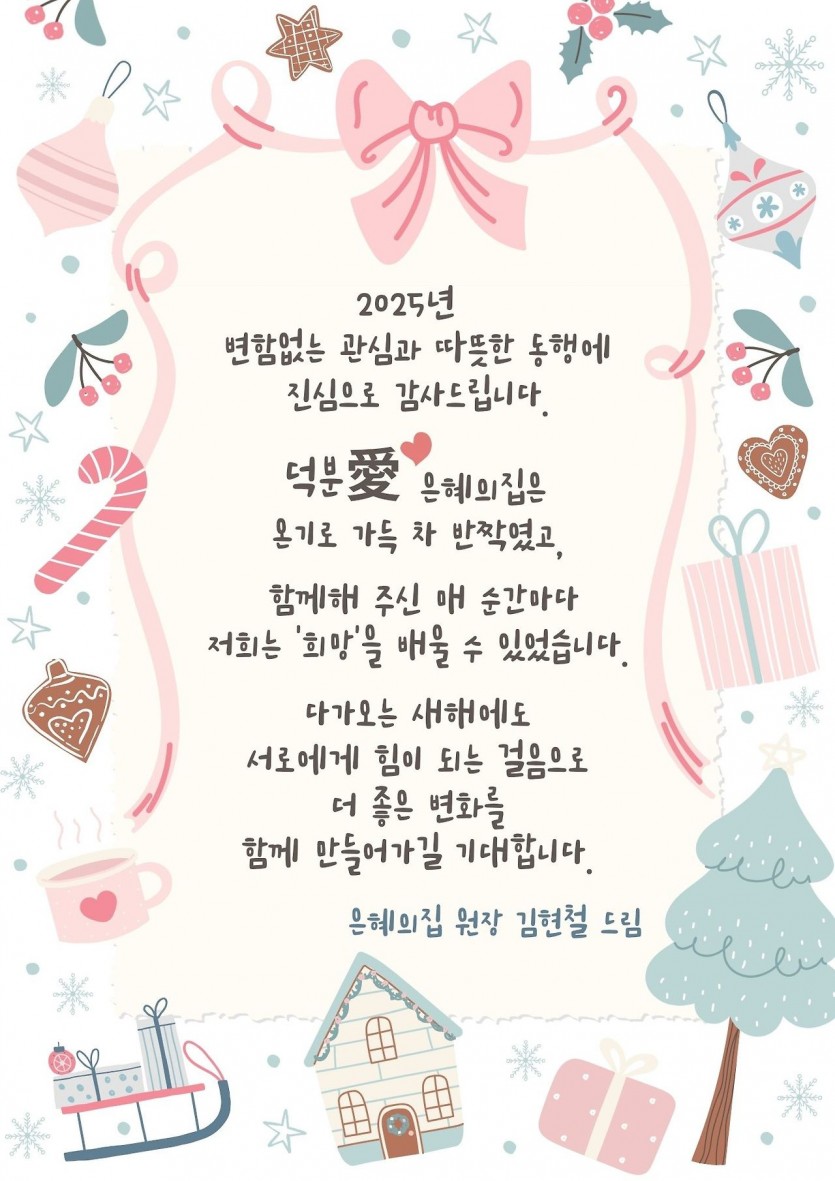 2025년
변함없는 관심과 따뜻한 동행에
진심으로 감사드립니다.
덕분愛 은혜의집은
온기로 가득 차 반짝였고,
함께해 주신 매 순간마다
저희는 '희망'을 배울 수 있었습니다.
다가오는 새해에도
서로에게 힘이 되는 걸음으로
더 좋은 변화를
함께 만들어가길 기대합니다.
은혜의집 원장 김현철 드림